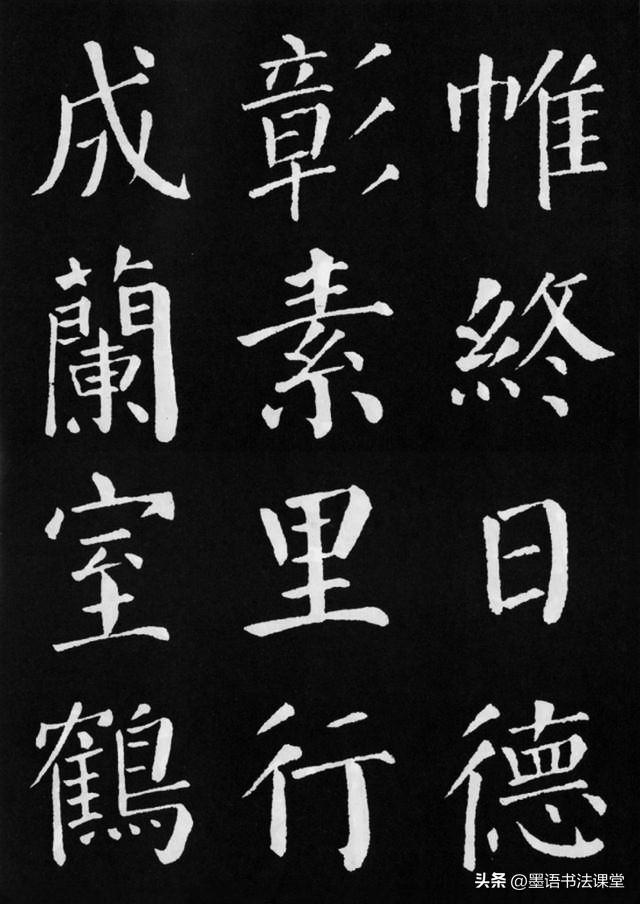 帷終日德
彰素里行
成蘭室鶴
头条 @墨语书法课堂